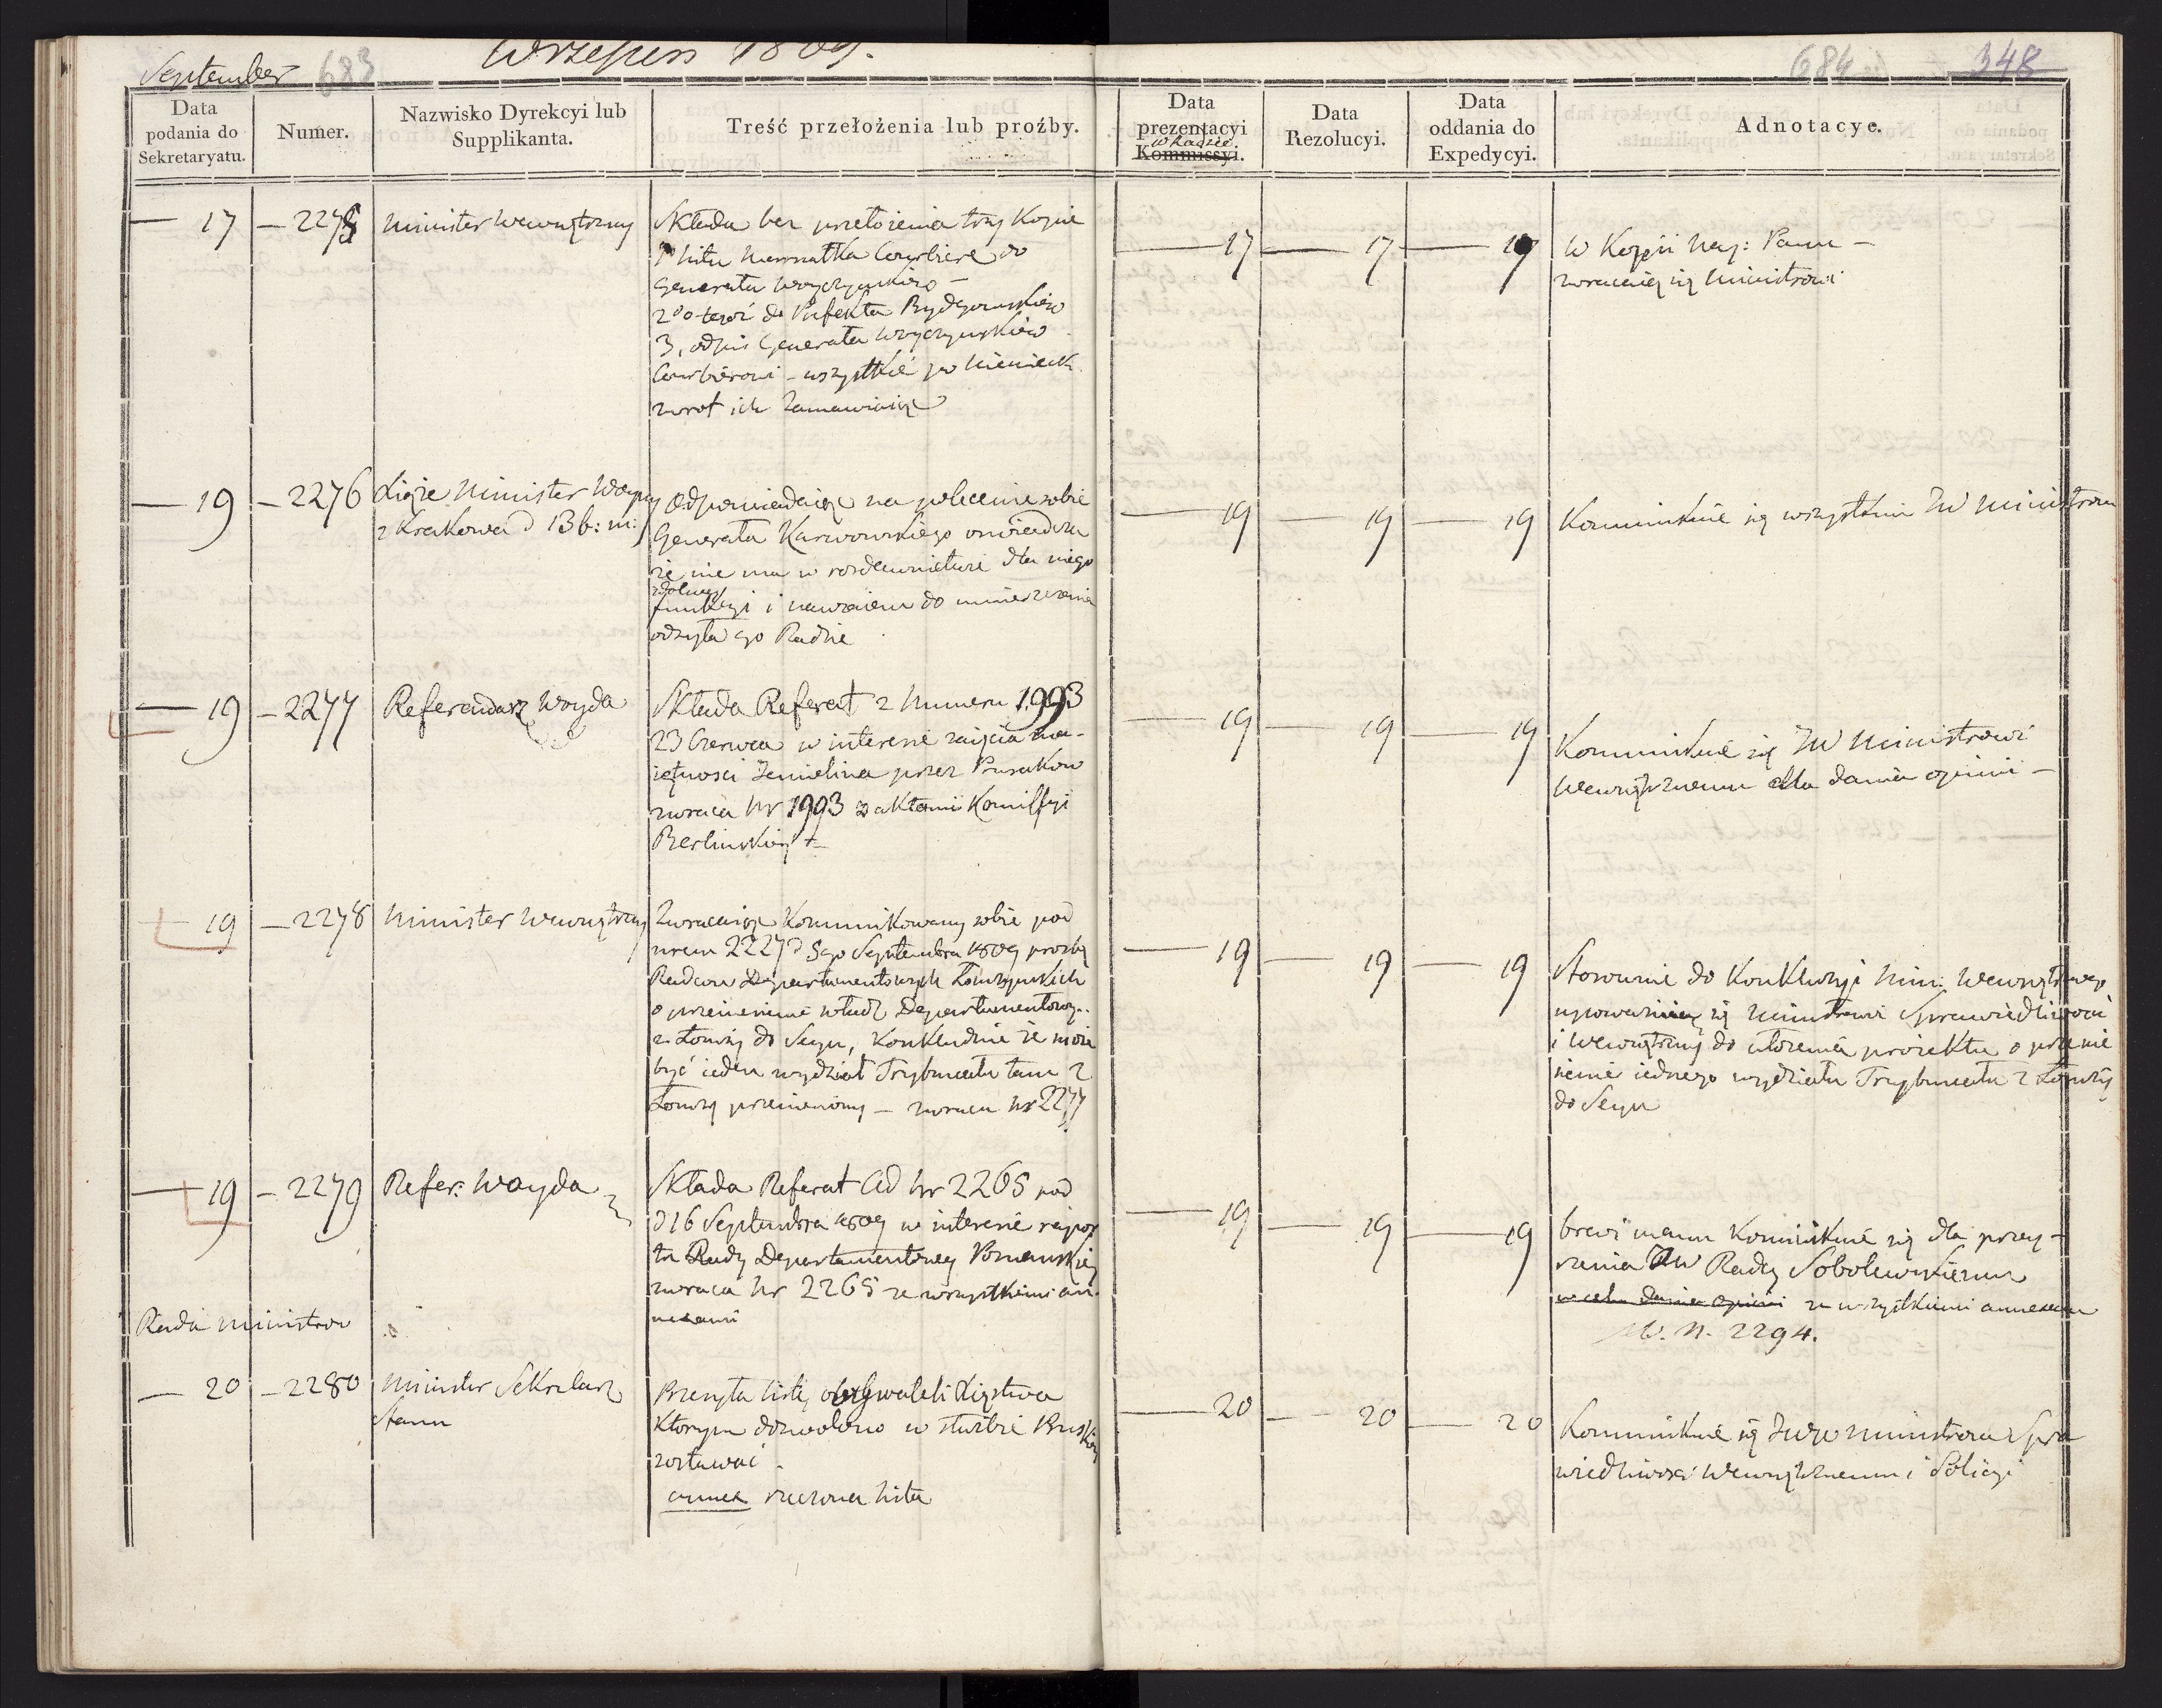 September 683
Wrzesień 1809.
684 348
Data podania do Sekretaryatu.
Numer.
Nazwisko Dyrekcyi lub Supplikanta.
Treść przełożenia lub proźby.
Data prezentacyi Kommissyi.
w Radzie
Data Rezolucyi.
Data oddania do Expedycyi.
Adnotacye.
— 17 — 2275 Minister Wewnętrzny
Składa bez przełożenia trzy Kopie
1 listu Marszałka Courbiere do
Generała Woyczyńskiego —
2do tegoż do Prefekta Bydgowskiego
3, odpis Generała Woyczyńskiego
Courbierowi – wszystkie po Niemieck.
zwrot ich zamawiaiąc
— 17 — 17 — 19
W Kopii Nay: Panu —
zwracaią się Ministrowi
— 19 — 2276 Xiąże Minister Woyny
z Krakowa d 13 b: m:
Odpowiedaiąc na polecenie sobie
Generała Karwowskiego oświadcza
że nie ma w rozdawnictwie dla niego
zdolney
funkcyi i nawzaiem do umieszczenia
odsyła go Radzie
— 19 — 19 — 19
Kommunikuie się wszystkim JW Ministrom
— 19 — 2277 Referendarz Woyda
Składa Referat z Numeru 1993
23 Czerwca w interesie zaięcia ma-
iętnosci Jemielina przez Prusaków
zwraca Nr 1993 z aktami Komissyi
Berlinskiey
— 19 — 19 — 19
Kommunikuie się JW Ministrowi
Wewnętrznemu dla dania opinii —
— 19 — 2278 Minister Wewnętrzny
Zwracaiąc Kommunikowaną sobie pod
nrem 2227 d 5go Septembra 1809 proźbę
Radców Departamentowych Łomżyńskich
o przeniesienie władz Departamentowych
z Łomży do Seyn, Konkluduie że może
być ieden wydział Trybunału tam z
Łomży przeniesiony — zwraca Nr 2277
— 19 — 19 — 19
Stosownie do Konkluzyi Min: Wewnętrznego
upoważniaią się Ministrowie Sprawiedliwości
i Wewnętrzny do ułożenia proiektu o przenie
sienie iednego wydziału Trybunału z Łomży
do Seyn
— 19 — 2279 Refer: Woyda
Składa Referat ad Nr 2265 pod
d 16 Septembra 1809 w interesie rapor
tu Rady Departamentowey Poznańskiey
zwraca Nr 2265 ze wszystkiemi an-
nexami
— 19 — 19 — 19
brevi manu Kommunikuie się dla przey-
rzenia JW Radcy Sobolewskiemu
w celu dania opinii ze wszystkiemi annexami
N. 2294.
Rada Ministrów
— 20 — 2280 Minister Sekretarz
Stanu
Przesyła listę obywateli Xięstwa
którym dozwolono w służbie Pruskiey
zostawać.
annex rzeczona lista
— 20 — 20 — 20
Kommunikuie się JWW Ministrom Spra
wiedliwości Wewnętrznemu i Policyi